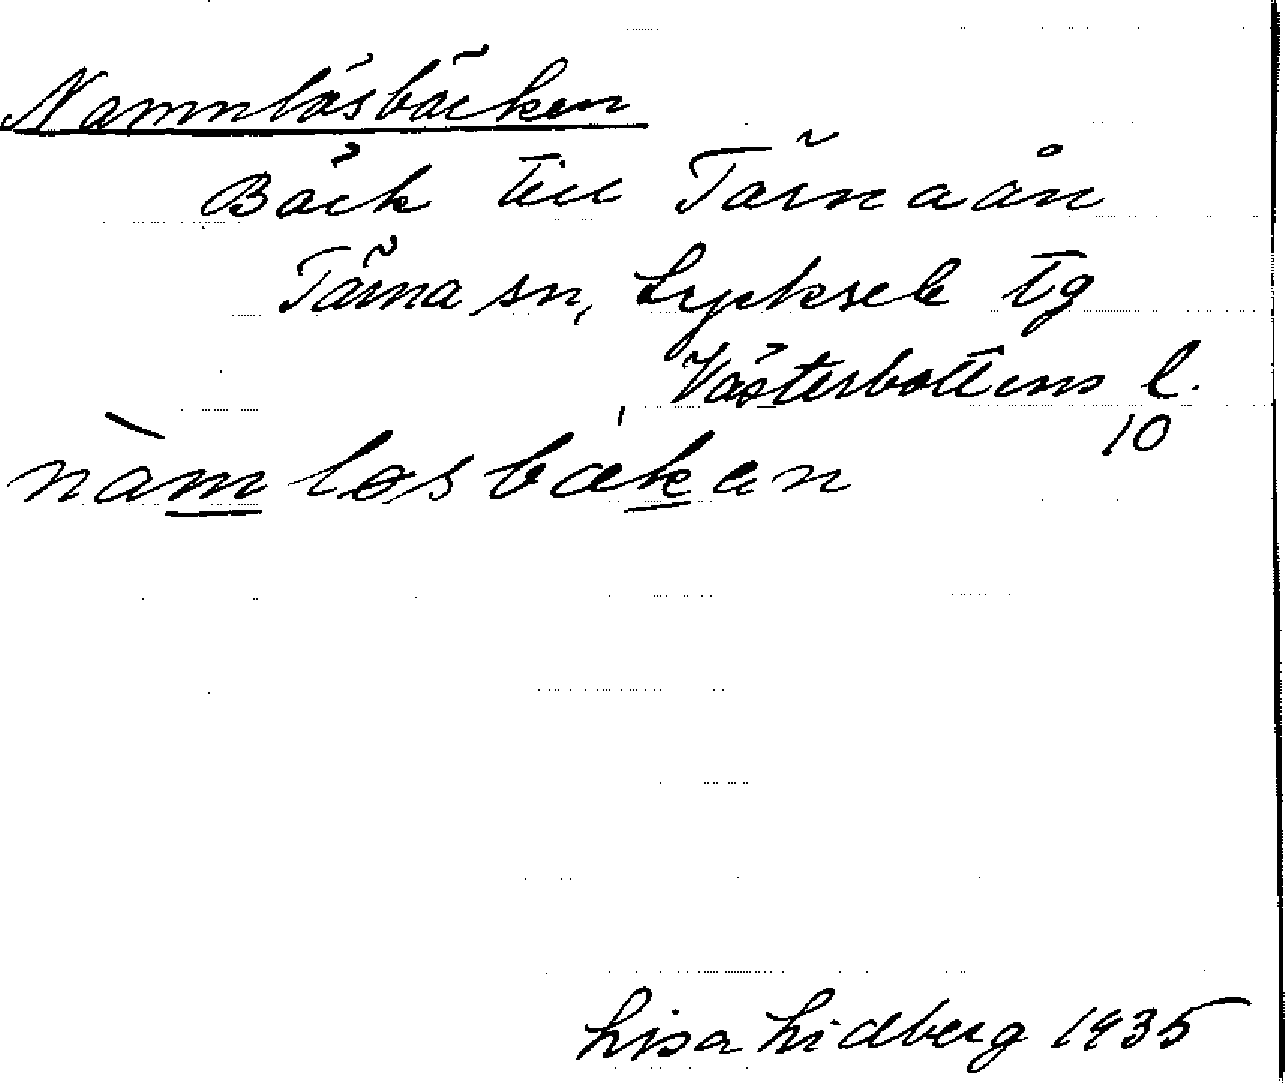 Namnlösbäcken
Bäck till Tärnaån
Tärna sn, Lycksele tg
Västerbottens l.
10
nàmløsbækən
Lisa Lidberg 1935